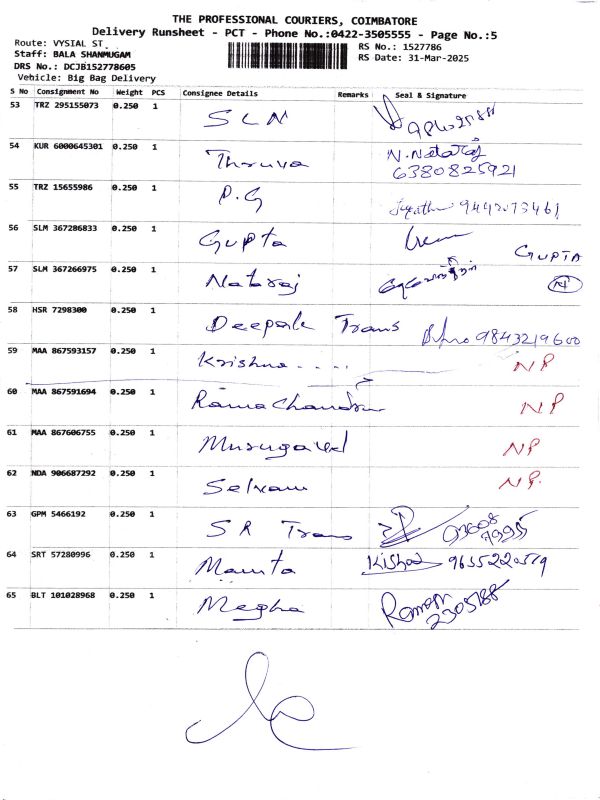 THE PROFESSIONAL COURIERS, COIMBATORE
Delivery Runsheet - PCT - Phone No.:0422-3505555 - Page No.:5
Route: VYSIAL ST
Staff: BALA SHANMUGAM
DRS No.: DCJB152778605
Vehicle: Big Bag Delivery
RS No.: 1527786
RS Date: 31-Mar-2025
S No Consignment No Weight PCS Consignee Details Remarks Seal & Signature
53 TRZ 295155073 0.250 1 SLN
54 KUR 6000645301 0.250 1 Thruva N.Nataraj
6380825921
55 TRZ 15655986 0.250 1 P.G 9442073461
56 SLM 367286833 0.250 1 Gupta GUPTA
57 SLM 367266975 0.250 1 Nataraj
58 HSR 7298300 0.250 1 Deepak Trans 9843219600
59 MAA 867593157 0.250 1 Krishna.... NP
60 MAA 867591694 0.250 1 Ramachandran NP
61 MAA 867606755 0.250 1 Murugavel NP
62 NDA 906687292 0.250 1 Selvam NP.
63 GPM 5466192 0.250 1 SR Trans
64 SRT 57280996 0.250 1 Mamta Kishor 9655220519
65 BLT 101028968 0.250 1 Megha Raman